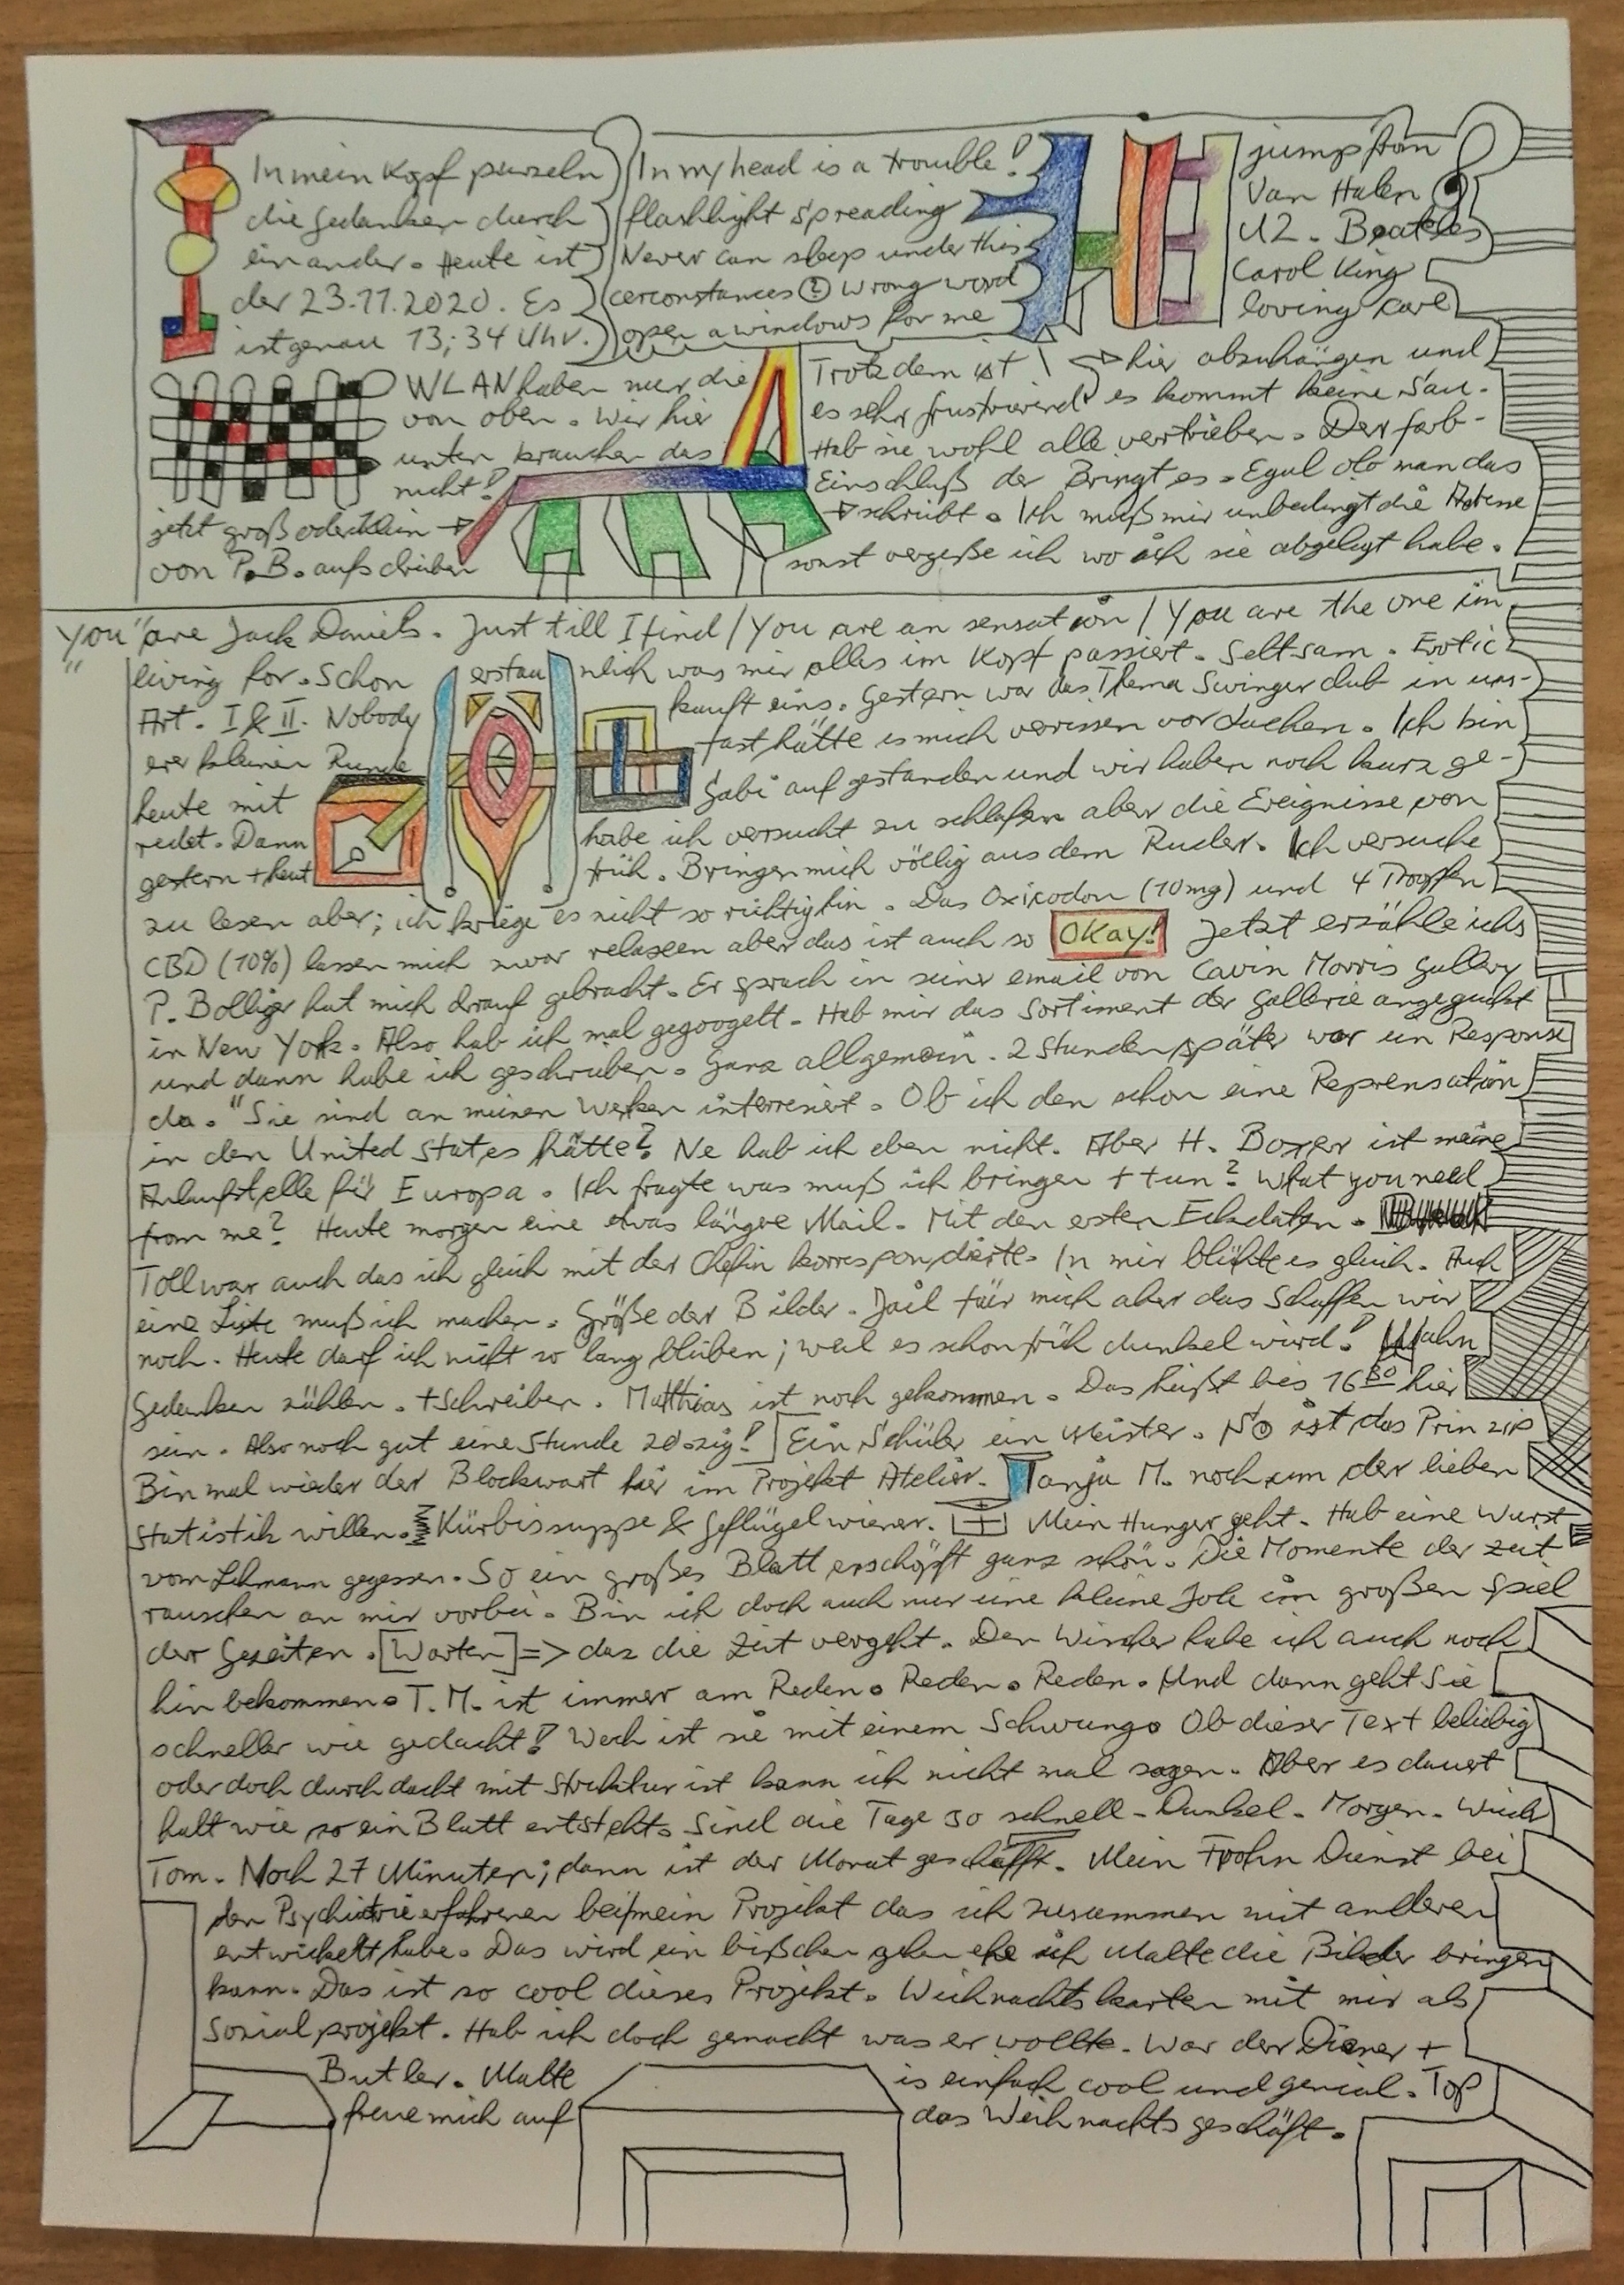 In mein Kopf purzeln
die Gedanken durch
einander. Heute ist
der 23.11.2020. Es
ist genau 13;34 Uhr.
In my head is a trouble!
flashlight spreading
Never can sleep under this
cerconstances ? wrong word
open a windows for me
jump from
Van Halen
U2. Beatles
Carol King
loving care
WLAN haben nur die
von oben. Wir hier
unten brauchen das
nicht!
Trotzdem ist hier abzuhängen und
es sehr frustrierend es kommt keine Sau.
Hab sie wohl alle vertrieben. Der farb-
Einschluß der Bringt es. Egal ob man das
jetzt groß oder klein schreibt. Ich muß mir unbedingt die Adresse
von P.B. aufschreiben sonst vergeße ich wo ich sie abgelegt habe.
"You" are Jack Daniels. Just till I find / You are an sensation / You are the one im
living for. Schon erstaunlich was mir alles im Kopf passiert. Seltsam. Erotic
Art. I & II. Nobody kauft eins. Gestern war das Thema Swingerclub in uns-
erer kleinen Runde fast hätte es mich verissen vor Lachen. Ich bin
heute mit Gabi aufgestanden und wir haben noch kurz ge-
redet. Dann habe ich versucht zu schlafen aber die Ereignisse von
gestern + heut früh. Bringen mich völlig aus dem Ruder. Ich versuche
zu lesen aber; ich kriege es nicht so richtig hin. Das Oxicodon (10mg) und 4 Tropfen
CBD (10%) lassen mich zwar relaxen aber das ist auch so Okay! Jetzt erzähle ichs
P. Bolliger hat mich drauf gebracht. Er sprach in seiner email von Cavin Morris Gallery
in New York. Also hab ich mal gegoogelt. Hab mir das Sortiment der Gallerie angeguckt
und dann habe ich geschrieben. Ganz allgemein. 2 Stunden später war ein Response
da. "Sie sind an meinen Werken interresiert. Ob ich den schon eine Reprensation
in den United States hätte? Ne hab ich eben nicht. Aber H. Boxer ist meine
Anlaufstelle für Europa. Ich fragte was muß ich bringen + tun? What you need
from me? Heute morgen eine etwas längere Mail. Mit den ersten Eckdaten.
Toll war auch das ich gleich mit der Chefin korrespondierte. In mir blühte es gleich. Auch
eine Liste muß ich machen. Größe der Bilder. Jail für mich aber das Schaffen wir
noch. Heute darf ich nicht so lang bleiben; weil es schon früh dunkel wird! Wahn
Gedanken zählen. + Schreiben. Matthias ist noch gekommen. Das heißt bis 16 30 hier
sein. Also noch gut eine Stunde 20zig! Ein Schüler ein Meister. So ist das Prinzip
Bin mal wieder der Blockwart hier im Projekt Atelier. Tanja M. noch um der lieben
Statistik willen. Kürbissuppe & Geflügelwiener. Mein Hunger geht. Hab eine Wurst
vom Lehmann gegessen. So ein großes Blatt erschöpft ganz schön. Die Momente der Zeit
rauschen an mir vorbei. Bin ich doch auch nur eine kleine Jole im großen Spiel
der Gezeiten. [Warten] => das die Zeit vergeht. Den Wischer habe ich auch noch
hin bekommen. T.M. ist immer am Reden. Reden. Reden. Und dann geht Sie
schneller wie gedacht! Wech ist sie mit einem Schwung. Ob dieser Text beliebig
oder doch durchdacht mit Struktur ist kann ich nicht mal sagen. Aber es dauert
halt wie so ein Blatt entsteht. Sind die Tage so schnell - Dunkel. Morgen. Wieder
Tom. Noch 27 Minuten; dann ist der Monat geschafft. Mein Frohn Dienst bei
den Psychiatrieerfahrenen bei mein Projekt das ich zusammen mit anderen
entwickelt habe. Das wird ein bißchen gehen ehe ich Malte die Bilder bringen
kann. Das ist so cool dieses Projekt. Weihnachtskarten mit mir als
Sozialprojekt. Hab ich doch gemacht was er wollte. War der Diener +
Butler. Malte is einfach cool und genial. Top
freue mich auf das Weihnachtsgeschäft.